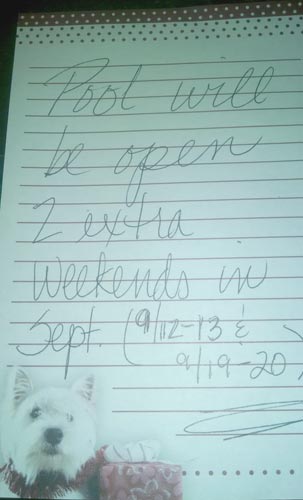 Pool will
be open
2 extra
weekends in
Sept. (9/12-13 &
9/19-20)